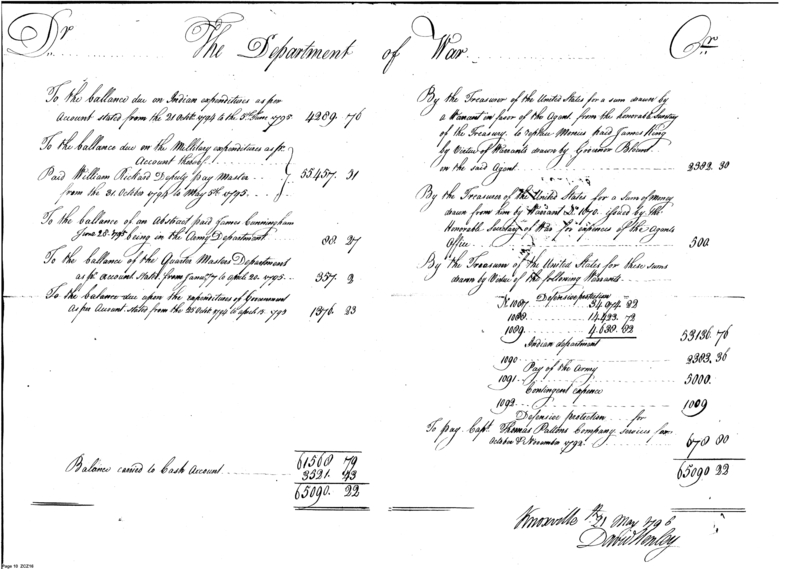 Dr The Department of War Cr
To the ballance due on Indian expenditures as per
Account stated from the 21 Octr. 1794 to the 5th June 1795 4289 76
To the ballance due on the Millitary expenditures as pr
Account thereof
Paid William Rickard Deputy pay Master
from the 31 October 1794 to May 5th 1795 55457. 31
To the ballance of an Abstract paid James Cunningham
June 28 1795 being in the Army Department 88. 27
To the ballance of the Quarter Masters Department
as pr account Stated from to April 20. 1795 357. 2
To the balance due upon the expenditures of Government
As per Account stated from the 25 Octr. 1794 to April 1376 23
61568 79
Ballance carried to Cash Account 3521. 43
65090. 22
By the Treasurer of the United States for a sum drawn by
a Warrant in favor of the Agent from the honorable Secretary
of the Treasury to replace Monies paid James King
by Virtue of Warrants drawn by Governor Blount
on the said Agent 30
By the Treasurer of the United States for a Sum of money
drawn from him by Warrant No. 1070. issued by The
Honorable Secretary of War for expences of the Agents
Office 500.
By the Treasurer of the United States for these sums
drawn by Virtue of the following Warrants
Defensive protection
No. 1087 34,074 22
1088 14.423. 72
1089 4.638. 82 53136. 76
Indian department
1090 2383. 36
Pay of the Army
1091 5000.
Contingent expence
1092 1009
Defensive protection for
To pay Capt. Thomas Company Services for
October & November 1792 678 80
65090 22
Knoxville 21 May 1796
David Henley
Page 10 ZCZ16